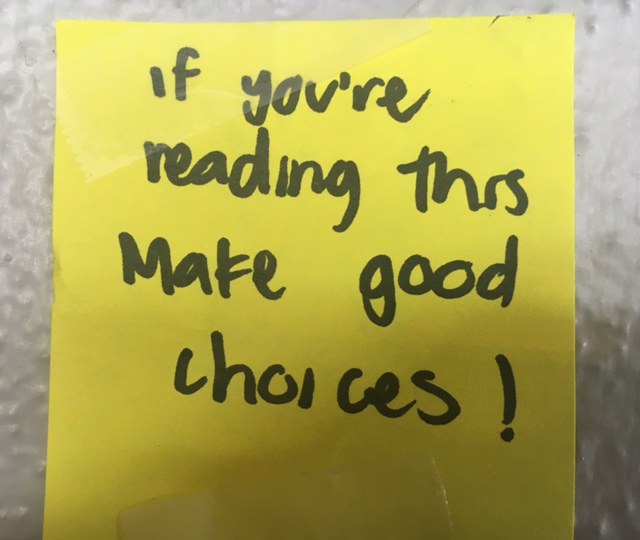 if you're
reading this
Make good
choices!